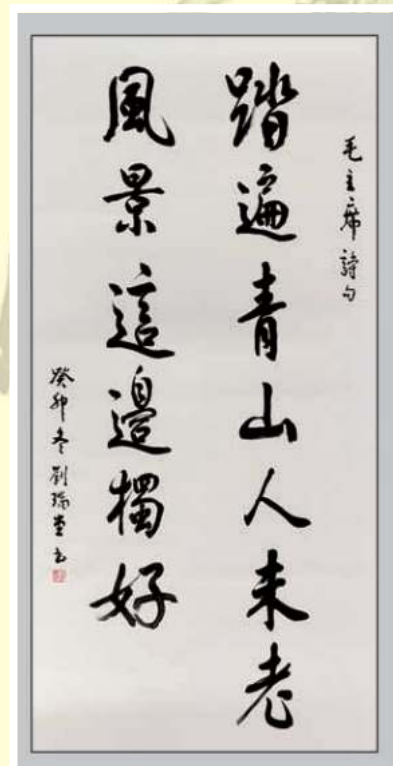 毛主席詩句
踏遍青山人未老
風景這邊獨好
癸卯冬劉瑞堂书